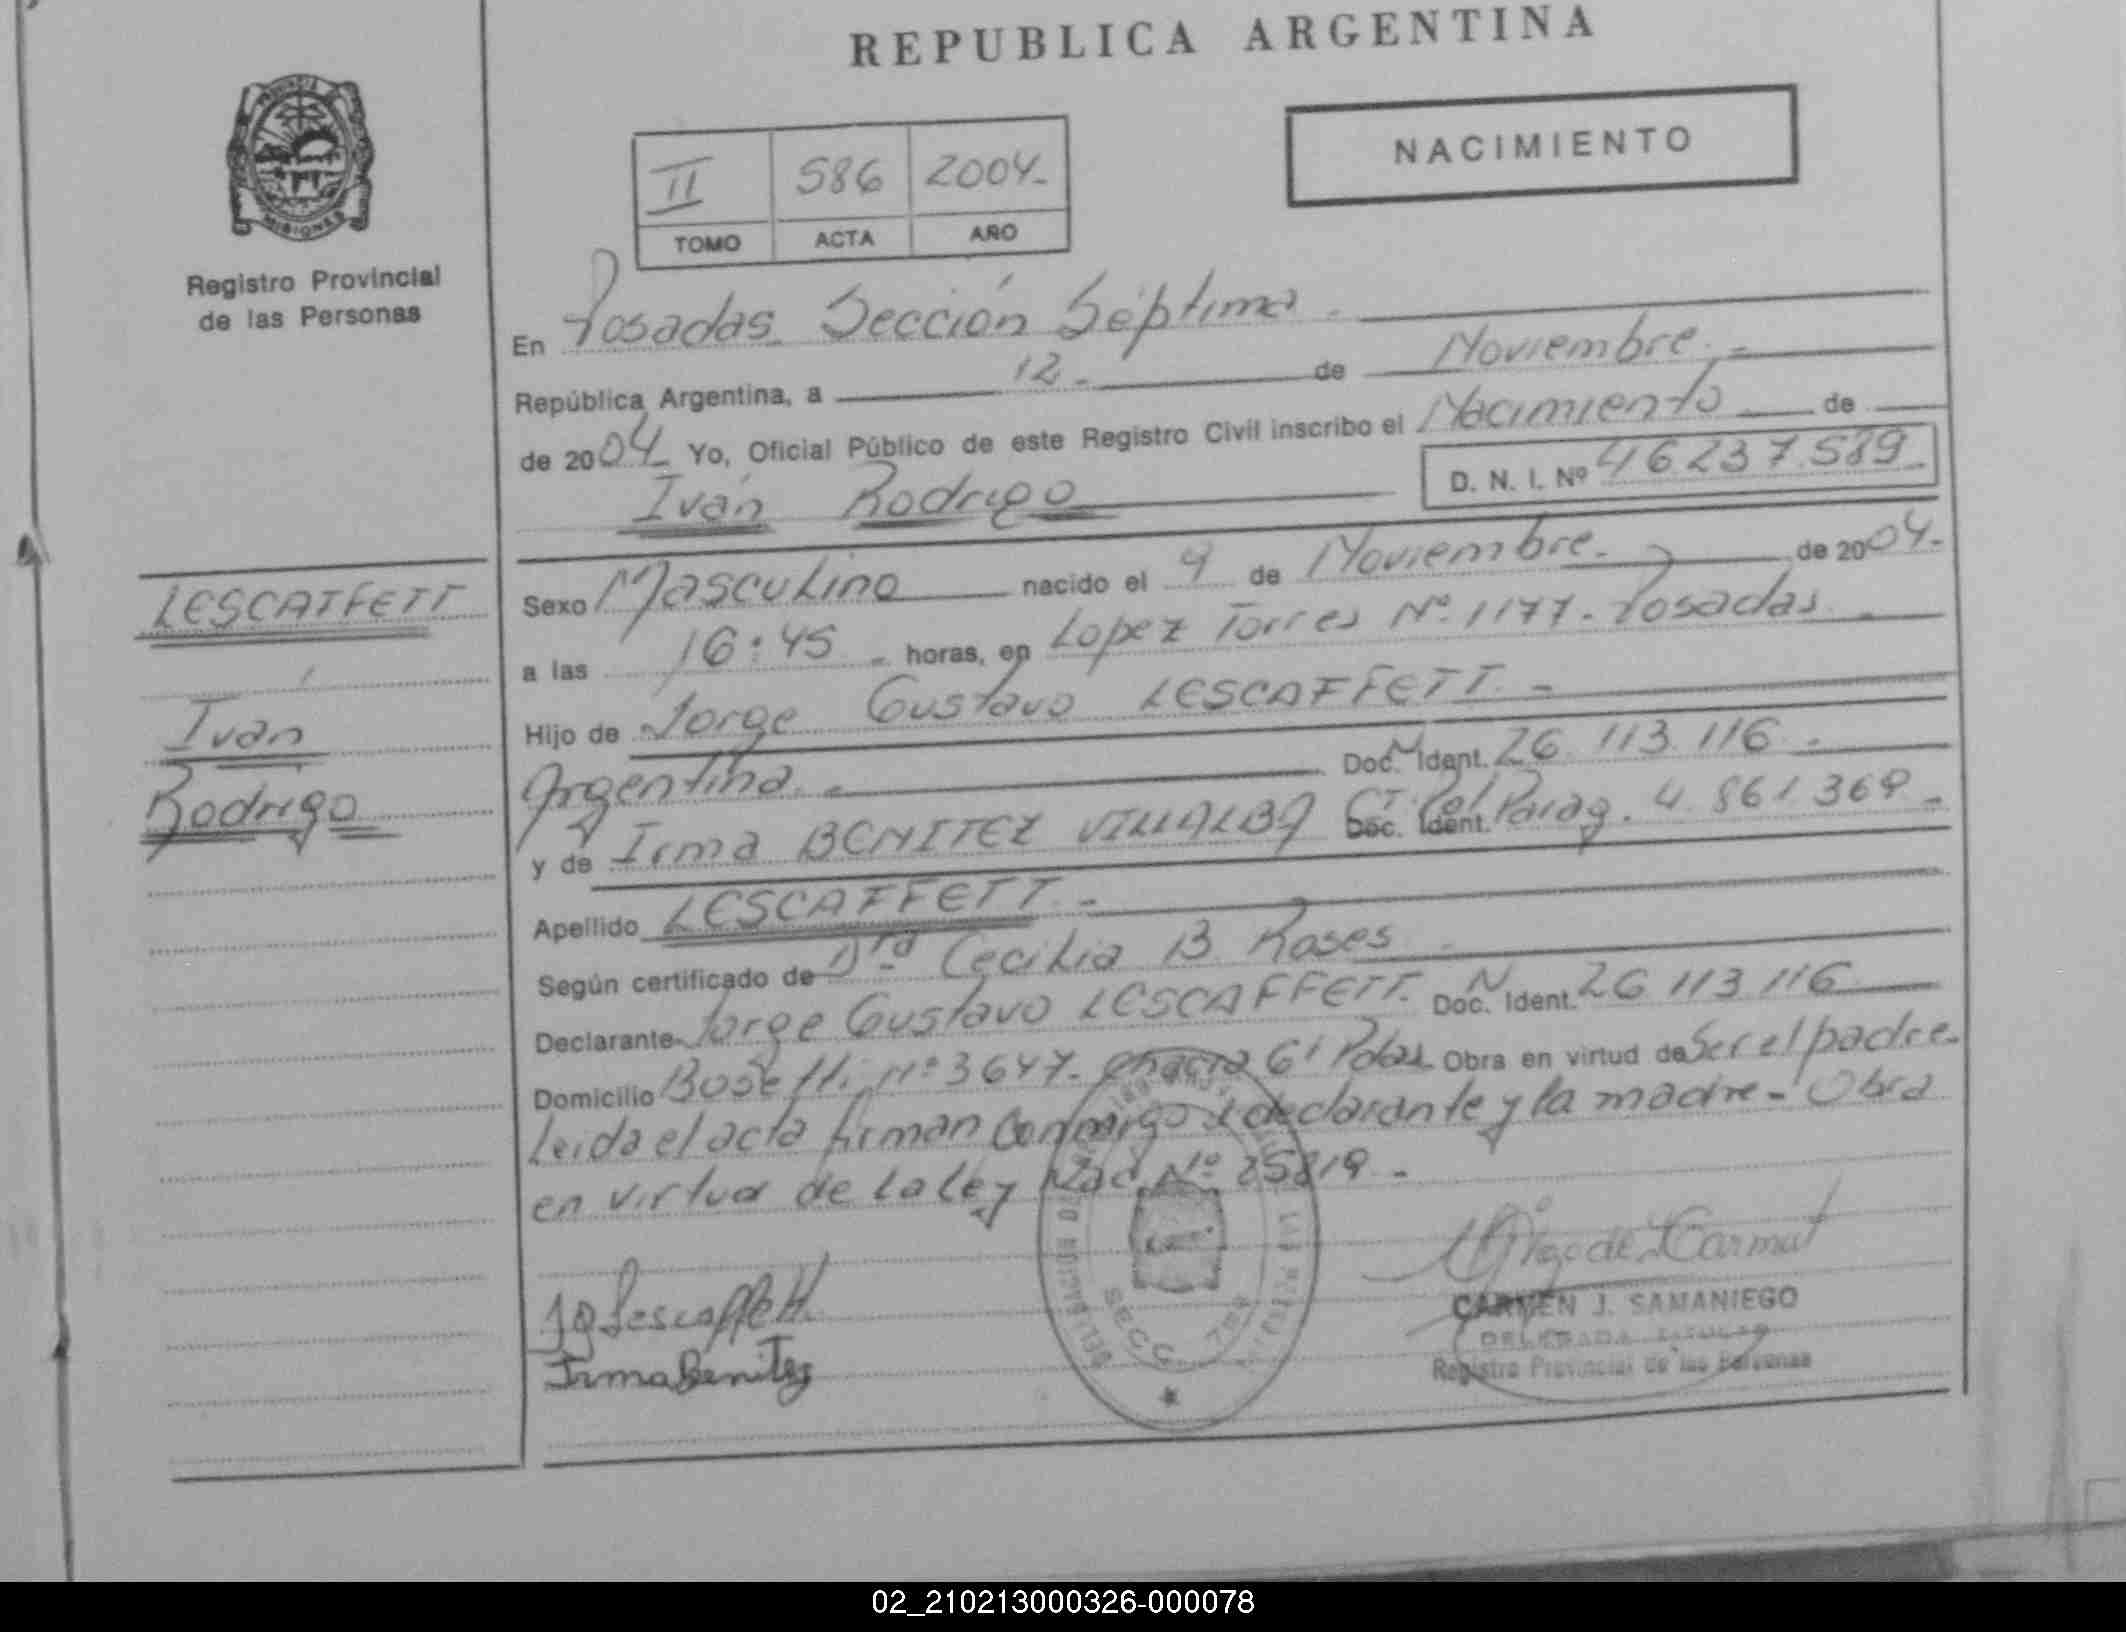 REPUBLICA ARGENTINA
NACIMIENTO
II 586 2004.-
TOMO ACTA AÑO
PROVINCIA
MISIONES
Registro Provincial
de las Personas
En Posadas Sección Séptima.
República Argentina, a 12.- de Noviembre.-
de 2004 Yo, Oficial Público de este Registro Civil inscribo el Nacimiento de
Iván Rodrigo
D. N. I. Nº 46.237.589.-
LESCAFFETT
Iván
Rodrigo
Sexo Masculino nacido el 9 de Noviembre.- de 2004.-
a las 16:45.- horas, en Lopez Torres Nº. 1177. Posadas.-
Hijo de Jorge Gustavo LESCAFFETT.-
Argentina.- Doc. N Ident. 26.113.116.-
y de Irma BENITEZ VILLALBA Doc. Ident. CI. Pol Parag. 4.861.369.-
Apellido LESCAFFETT.-
Según certificado de Dra Cecilia B. Roses.
Declarante Jorge Gustavo LESCAFFETT. Doc. N Ident. 26.113.116.
Domicilio Bosetti nº 3647. Chacra 61 Pdas. Obra en virtud de Ser el padre.
Leída el acta firman conmigo declarante y la madre.- Obra
en virtud de la ley Nac. Nº 25819.-
JGLescaffett
Irma Benitez
SECC.
CARMEN J. SAMANIEGO
DELEGADA TITULAR
Registro Provincial de las Personas
02_210213000326-000078